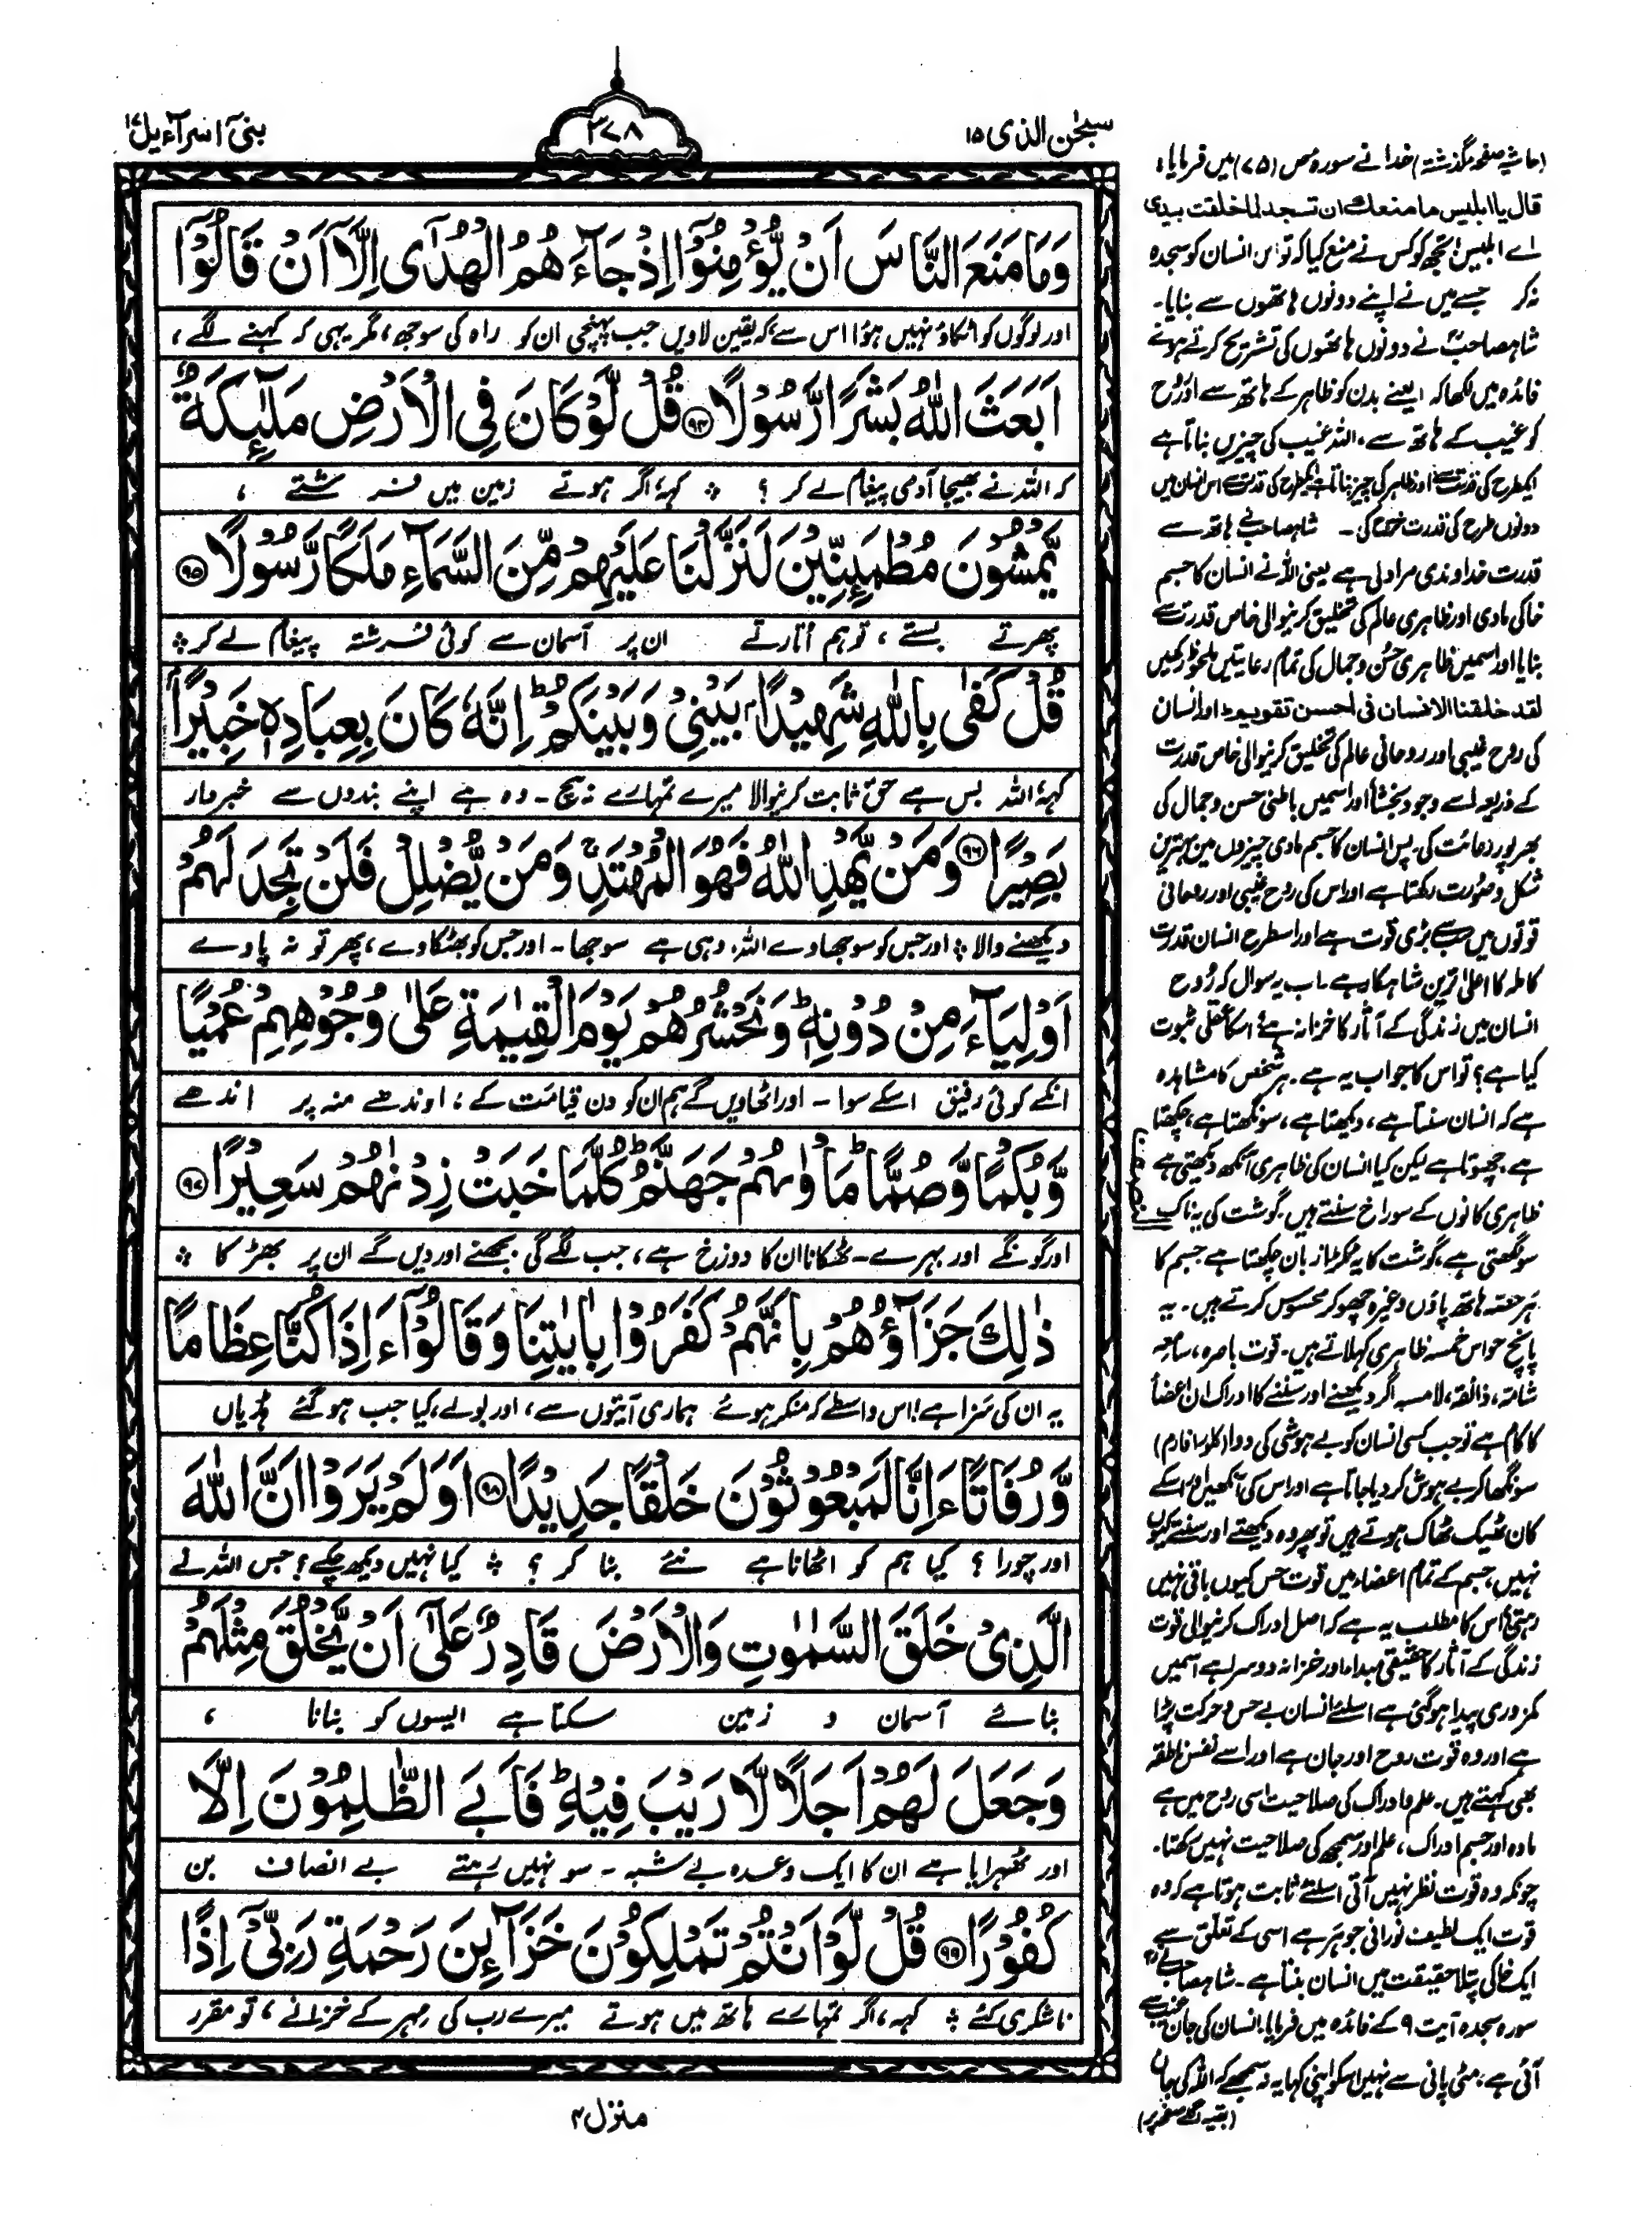 سبحٰن الذی ۱۵
۳۷۸
بنیٓ اسرآءیل ۱۷
وَمَا مَنَعَ النَّاسَ اَنْ یُّؤْمِنُوْٓا اِذْ جَآءَ هُمُ الْهُدٰٓی اِلَّآ اَنْ قَالُوْٓا
اور لوگوں کو اٹکاؤ نہیں ہوا اس سے، کہ یقین لاویں جب پہنچی ان کو راہ کی سوجھ، مگر یہی کہ کہنے لگے،
اَبَعَثَ اللّٰهُ بَشَرًا رَّسُوْلًا ﴿۹۴﴾ قُلْ لَّوْ كَانَ فِی الْاَرْضِ مَلٰٓئِكَةٌ
کہ اللہ نے بھیجا آدمی پیغام لے کر ؟ ؞ کہہ، اگر ہوتے زمین میں فرشتے ،
یَّمْشُوْنَ مُطْمَئِنِّیْنَ لَنَزَّلْنَا عَلَیْهِمْ مِّنَ السَّمَآءِ مَلَكًا رَّسُوْلًا ﴿۹۵﴾
پھرتے بستے ، تو ہم اتارتے ان پر آسمان سے کوئی فرشتہ پیغام لے کر ؞
قُلْ كَفٰی بِاللّٰهِ شَهِیْدًۢا بَیْنِیْ وَبَیْنَكُمْ ؕ اِنَّهٗ كَانَ بِعِبَادِهٖ خَبِیْرًۢا
کہہ، اللہ بس ہے حق ثابت کرنیوالا میرے تمہارے بیچ۔ وہ ہے اپنے بندوں سے خبردار
بَصِیْرًا ﴿۹۶﴾ وَمَنْ یَّهْدِ اللّٰهُ فَهُوَ الْمُهْتَدِ ۚ وَمَنْ یُّضْلِلْ فَلَنْ تَجِدَ لَهُمْ
دیکھنے والا ؞ اور جس کو سوجھاوے اللہ، وہی ہے سوجھا۔ اور جس کو بھٹکاوے، پھر تو نہ پاوے
اَوْلِیَآءَ مِنْ دُوْنِهٖ ؕ وَنَحْشُرُهُمْ یَوْمَ الْقِیٰمَةِ عَلٰی وُجُوْهِهِمْ عُمْیًا
انکے کوئی رفیق اسکے سوا۔ اور اٹھاویں گے ہم ان کو دن قیامت کے، اوندھے منہ پر اندھے
وَّبُكْمًا وَّصُمًّا ؕ مَاْوٰىهُمْ جَهَنَّمُ ؕ كُلَّمَا خَبَتْ زِدْنٰهُمْ سَعِیْرًا ﴿۹۷﴾
اور گونگے اور بہرے۔ ٹھکانا ان کا دوزخ ہے، جب لگے گی بجھنے اور دیں گے ان پر بھڑکا ؞
ذٰلِكَ جَزَآؤُهُمْ بِاَنَّهُمْ كَفَرُوْا بِاٰیٰتِنَا وَقَالُوْٓا ءَاِذَا كُنَّا عِظَامًا
یہ ان کی سزا ہے! اس واسطے کہ منکر ہوئے ہماری آیتوں سے، اور بولے، کیا جب ہو گئے ہڈیاں
وَّرُفَاتًا ءَاِنَّا لَمَبْعُوْثُوْنَ خَلْقًا جَدِیْدًا ﴿۹۸﴾ اَوَلَمْ یَرَوْا اَنَّ اللّٰهَ
اور چورا ؟ کیا ہم کو اٹھانا ہے نئے بنا کر ؟ ؞ کیا نہیں دیکھ چکے ؟ جس اللہ نے
الَّذِیْ خَلَقَ السَّمٰوٰتِ وَالْاَرْضَ قَادِرٌ عَلٰٓی اَنْ یَّخْلُقَ مِثْلَهُمْ
بنائے آسمان و زمین سکتا ہے ایسوں کو بنانا ،
وَجَعَلَ لَهُمْ اَجَلًا لَّا رَیْبَ فِیْهِ ؕ فَاَبَی الظّٰلِمُوْنَ اِلَّا
اور ٹھہرایا ہے ان کا ایک وعدہ بے شبہ۔ سو نہیں رہتے بے انصاف بن
كُفُوْرًا ﴿۹۹﴾ قُلْ لَّوْ اَنْتُمْ تَمْلِكُوْنَ خَزَآئِنَ رَحْمَةِ رَبِّیْٓ اِذًا
ناشکری کئے ؞ کہہ، اگر تمہارے ہاتھ میں ہوتے میرے رب کی مہر کے خزانے، تو مقرر
منزل ۴
(حاشیہ صفحہ گذشتہ) خدا نے سورہ ص (۷۵) میں فرمایا:
قال یا ابلیس ما منعك ان تسجد لما خلقت بیدی
اے ابلیس! تجھ کو کس نے منع کیا کہ تو اس انسان کو سجدہ
نہ کر جسے میں نے اپنے دونوں ہاتھوں سے بنایا۔
شاہصاحبؒ نے دونوں ہاتھوں کی تشریح کرتے ہوئے
فائدہ میں لکھا کہ یعنے بدن کو ظاہر کے ہاتھ سے اور رُوح
کو غیب کے ہاتھ سے، اللہ غیب کی چیزیں بناتا ہے
ایکطرح کی قدرت سے اور ظاہر کی چیز بناتا ہے ایکطرح کی قدرت سے اس انسان میں
دونوں طرح کی قدرت خرچ کی۔ شاہصاحب نے ہاتھ سے
قدرت خداوندی مراد لی ہے یعنی اللہ نے انسان کا جسم
خاکی مادی اور ظاہری عالم کی تخلیق کرنیوالی خاص قدرت سے
بنایا اور اسمیں ظاہری حُسن و جمال کی تمام رعایتیں ملحوظ رکھیں
لقد خلقنا الانسان فی احسن تقویم اور انسان
کی روح غیبی اور روحانی عالم کی تخلیق کرنیوالی خاص قدرت
کے ذریعہ اسے وجود بخشا اور اسمیں باطنی حسن و جمال کی
بھرپور رعائت کی۔ پس انسان کا جسم مادی چیزوں میں بہترین
شکل و صُورت رکھتا ہے اور اس کی رُوح غیبی اور روحانی
قوتوں میں سب سے بڑی قوت ہے اور اسطرح انسان قدرت
کاملہ کا اعلیٰ ترین شاہکار ہے۔ اب یہ سوال کہ رُوح
انسان میں زندگی کے آثار کا خزانہ ہے؟ اسکا عقلی ثبوت
کیا ہے؟ تو اس کا جواب یہ ہے۔ ہر شخص کا مشاہدہ
ہے کہ انسان سنتا ہے، دیکھتا ہے، سونگھتا ہے، چکھتا
ہے، چھوتا ہے لیکن کیا انسان کی ظاہری آنکھ دیکھتی ہے
ظاہری کانوں کے سوراخ سنتے ہیں، گوشت کی یہ ناک
سونگھتی ہے، گوشت کا یہ ٹکڑا زبان چکھتا ہے جسم کا
ہر حصہ ہاتھ پاؤں وغیرہ چھو کر محسوس کرتے ہیں۔ یہ
پانچ حواس خمسہ ظاہری کہلاتے ہیں۔ قوت باصرہ، سامعہ
شامّہ، ذائقہ، لامسہ اگر دیکھنے اور سننے کا ادراک ان اعضأ
کا کام ہے تو جب کسی انسان کو بے ہوشی کی دوا (کلوسا فارم)
سونگھا کر بے ہوش کر دیا جاتا ہے اور اس کی آنکھیں اور اسکے
کان ٹھیک ٹھاک ہوتے ہیں تو پھر وہ دیکھتے اور سنتے کیوں
نہیں، جسم کے تمام اعضاء میں قوت حس کیوں باقی نہیں
رہتی؟ اس کا مطلب یہ ہے کہ اصل ادراک کرنیوالی قوت
زندگی کے آثار کا حقیقی مبداء اور خزانہ دوسرا ہے اسمیں
کمزوری پیدا ہو گئی ہے اسلئے انسان بے حس و حرکت پڑا
ہے اور وہ قوت روح اور جان ہے اور اسے نفس ناطقہ
بھی کہتے ہیں۔ علم و ادراک کی صلاحیت اسی روح میں ہے
مادہ اور جسم ادراک، علم اور سمجھ کی صلاحیت نہیں رکھتا۔
چونکہ وہ قوت نظر نہیں آتی اسلئے ثابت ہوتا ہے کہ وہ
قوت ایک لطیف نورانی جوہر ہے اسی کے تعلّق سے
ایک خاکی پتلا حقیقت میں انسان بنتا ہے۔ شاہصاحب نے
سورہ سجدہ آیت ۹ کے فائدہ میں فرمایا: انسان کی جان غیب سے
آئی ہے: مٹی پانی سے نہیں اسکو اپنی کہا یہ نہ سمجھے کہ اللہ کی جان
(بقیہ اگلے صفحہ پر)